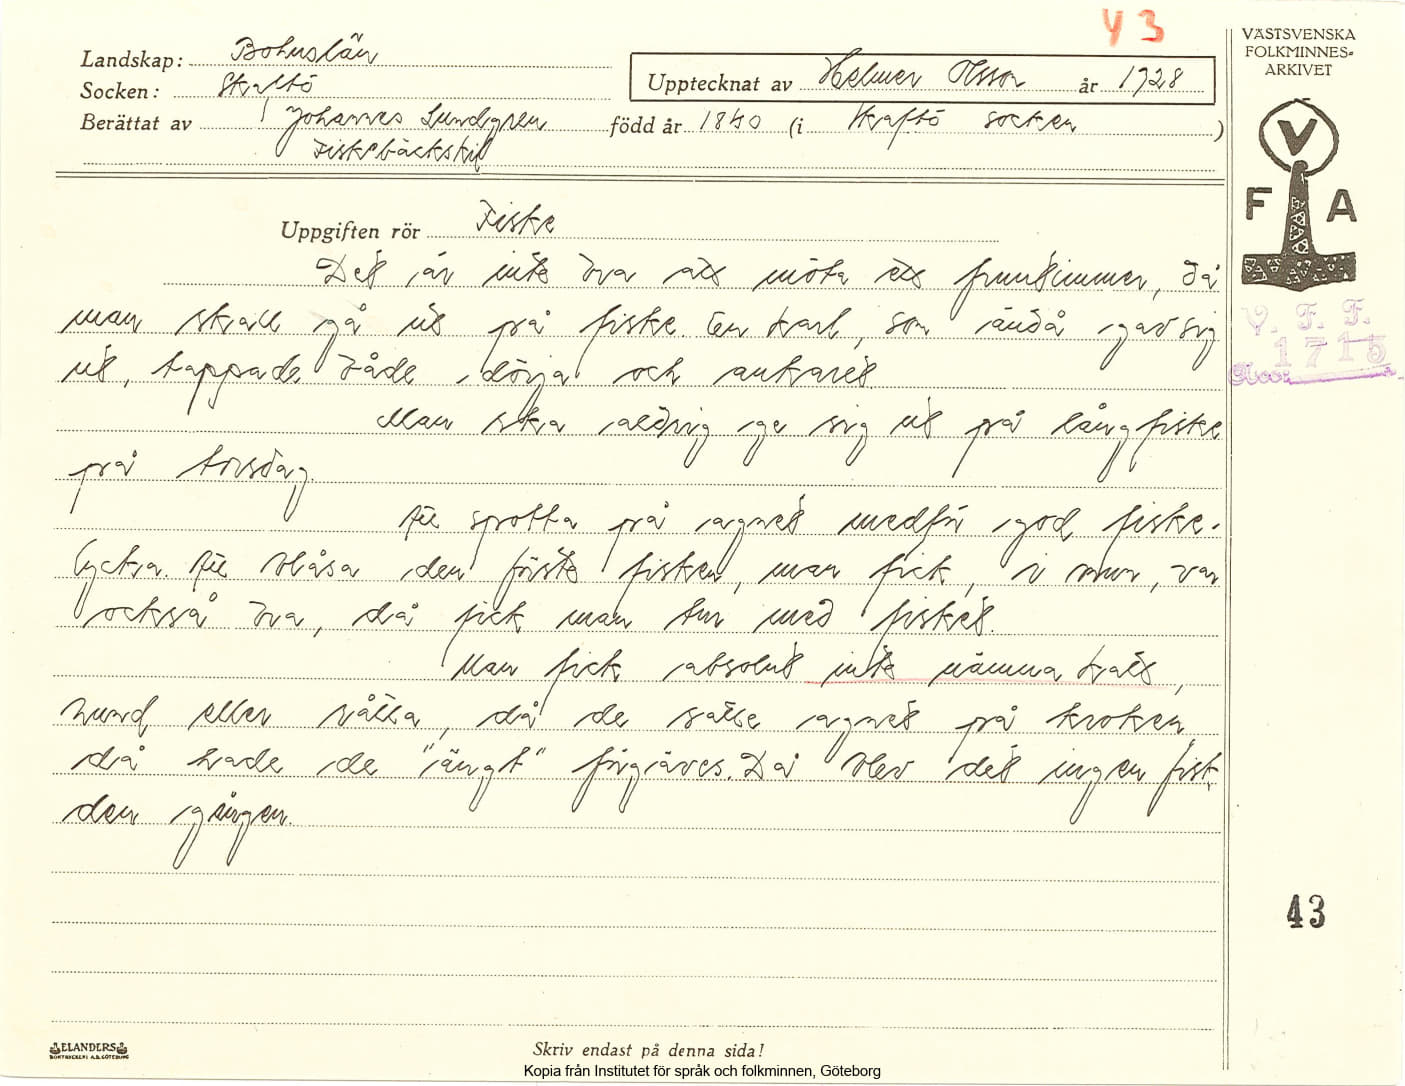 43
VÄSTSVENSKA
FOLKMINNES-
ARKIVET
Landskap: Bohuslän
Socken: Skaftö
Upptecknat av Helmer Olsson år 1928
Berättat av Johannes Lundgren född år 1840 (i Skaftö socken)
Fiskebäckskil
V
F A
Uppgiften rör Fiske
Det är inte bra att möta ett fruntimmer, då
man skall gå ut på fiske. En karl, som ändå gav sig
ut, tappade både dörja och ankaret.
Man ska aldrig ge sig ut på långfiske
på torsdag.
Att spotta på agnet medför god fiske-
lycka. Att blåsa den första fisken, man fick, i mun, var
också bra, då fick man tur med fisket.
Man fick absolut inte nämna katt,
hund eller råtta, då de satte agnet på kroken,
då hade de "ängt" förgäves. Då blev det ingen fisk
den gången.
V. F. F.
1715
43
ELANDERS
BOKTRYCKERI A.B. GÖTEBORG
Skriv endast på denna sida!
Kopia från Institutet för språk och folkminnen, Göteborg